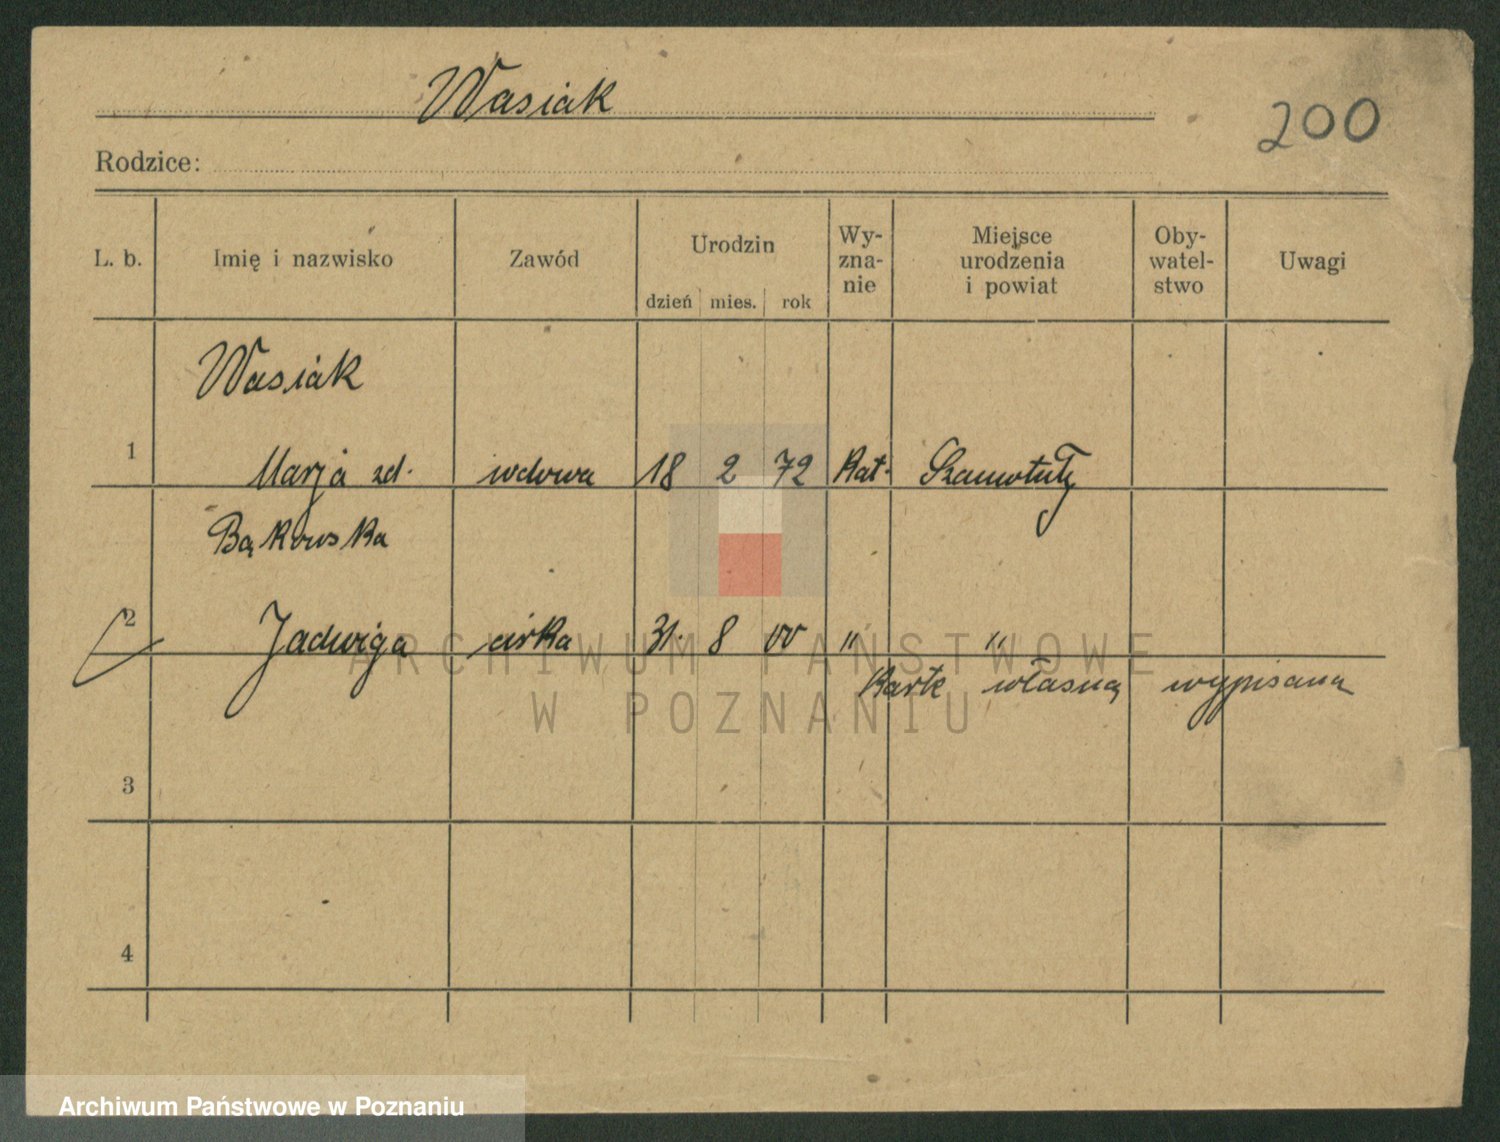 Wasiak
200
Rodzice:
L. b. Imię i nazwisko Zawód Urodzin dzień mies. rok Wy-zna-nie Miejsce urodzenia i powiat Oby-watel-stwo Uwagi
Wasiak
1 Marja zd. wdowa 18 2 72 Kat. Szamotuły
Bąkowska
2 Jadwiga córka 31. 8 00 " "
własną wypisaną
3
4
ARCHIWUM PAŃSTWOWE
W POZNANIU
Archiwum Państwowe w Poznaniu